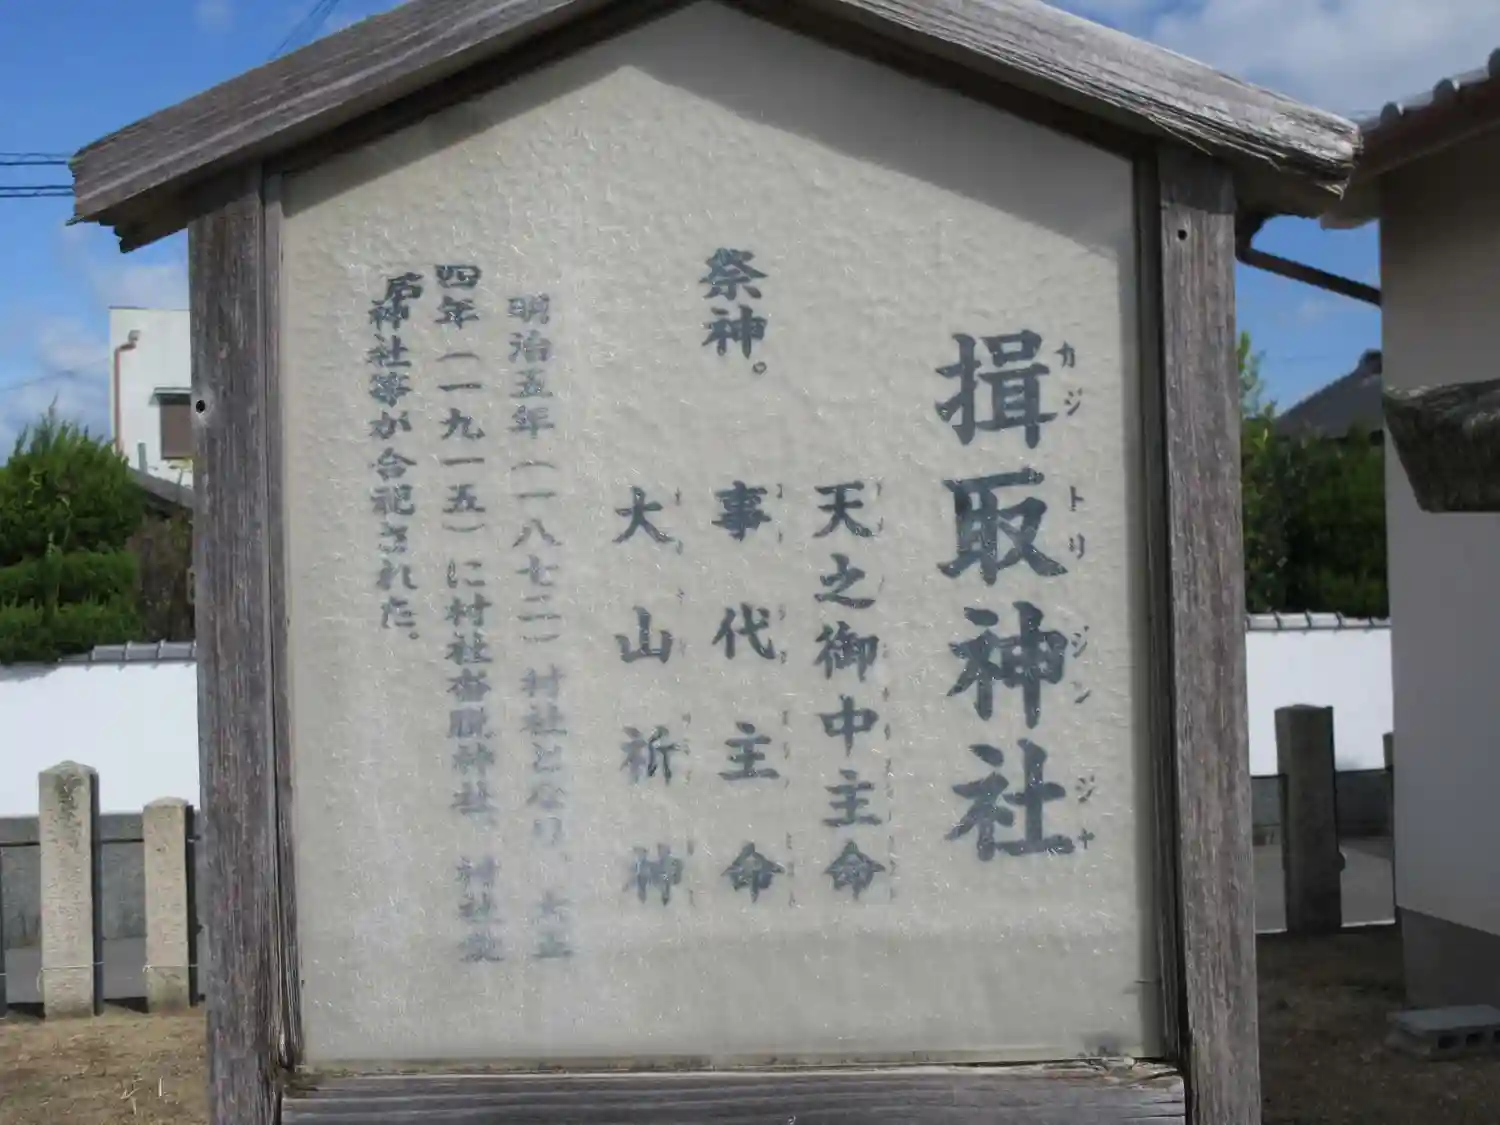 揖取神社
カジトリジンジャ
祭神。
天之御中主命
事代主命
大山祈神
明治五年(一八七二)村社となり、大正
四年(一九一五)に村社沓脱神社、村社荒
居神社等が合祀された。